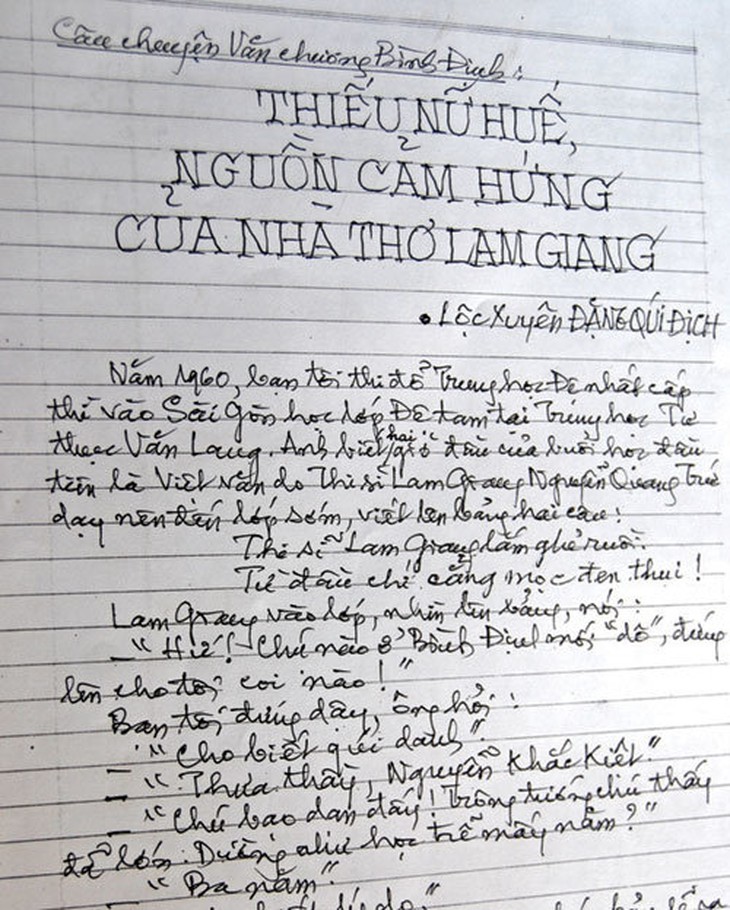 Câu chuyện Văn chương Bình Định:
THIẾU NỮ HUẾ,
NGUỒN CẢM HỨNG
CỦA NHÀ THƠ LAM GIANG
• Lộc Xuyên ĐẶNG QUÍ ĐỊCH
Năm 1960, bạn tôi thi đỗ Trung học Đệ nhất cấp
thì vào Sài Gòn học lớp Đệ tam tại Trung học Tư
thục Văn Lang. Anh biết hai giờ đầu của buổi học đầu
tiên là Việt văn do Thi sĩ Lam Giang Nguyễn Quang Trứ
dạy nên đến lớp sớm, viết lên bảng hai câu:
Thi sĩ Lam Giang lắm ghẻ ruồi
Từ đầu chí cẳng mọc đen thui!
Lam Giang vào lớp, nhìn lên bảng, nói:
_"Hừ! Chú nào ở Bình Định mới "dô", đứng
lên cho tôi coi nào!"
Bạn tôi đứng dậy, ông hỏi:
"Cho biết quí danh".
_"Thưa thầy, Nguyễn Khắc Kiết."
_"Chú bao dan đấy! Trông tướng chú thấy
đã lớn. Dường như học trễ mấy năm?"
"Ba năm".